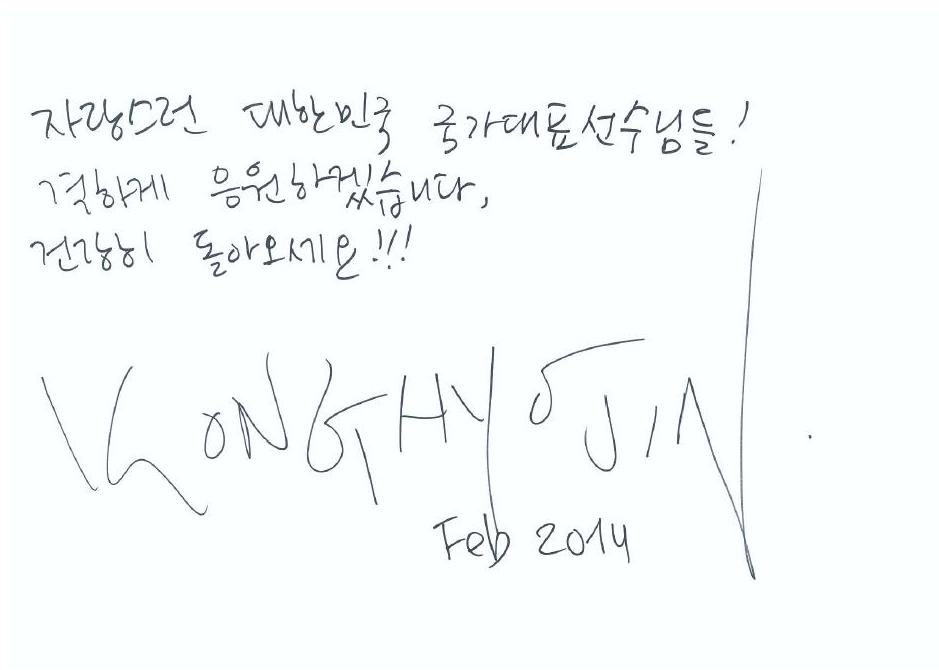 자랑스런 대한민국 국가대표선수님들!
격하게 응원하겠습니다,
건강히 돌아오세요!!!
KONGHYOJIN.
Feb 2014